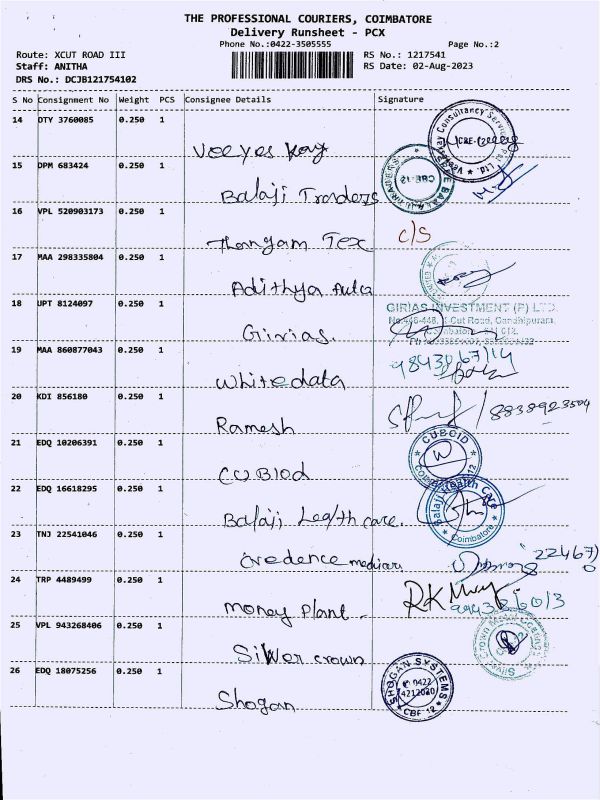 THE PROFESSIONAL COURIERS, COIMBATORE
Delivery Runsheet - PCX
Phone No.:0422-3505555 Page No.:2
Route: XCUT ROAD III RS No.: 1217541
Staff: ANITHA RS Date: 02-Aug-2023
DRS No.: DCJB121754102
S No Consignment No Weight PCS Consignee Details Signature
14 DTY 3760085 0.250 1
Veeyes Consultancy Services Ltd.
15 DPM 683424 0.250 1
Balaji Traders
CBE-12
16 VPL 520903173 0.250 1
Thangam Tex c/s
17 MAA 298335804 0.250 1
Adithya Auto
18 UPT 8124097 0.250 1
GIRIAS INVESTMENT (P) LTD.
No.446-448, X-Cut Road, Gandhipuram,
Coimbatore - 641 012.
Girias.
19 MAA 860877043 0.250 1
Whitedata
20 KDI 856180 0.250 1
8838923504
Ramesh
21 EDQ 10206391 0.250 1
CUBCID
CUBIOD
22 EDQ 16618295 0.250 1
Balaji Health Care
Coimbatore
Balaji Health care.
23 TNJ 22541046 0.250 1
22467
Credence
24 TRP 4489499 0.250 1
RK
Money Plant.
25 VPL 943268406 0.250 1
Silver crown
26 EDQ 18075256 0.250 1
SHOGAN SYSTEMS
0422
4212080
CBE-12
Shogan